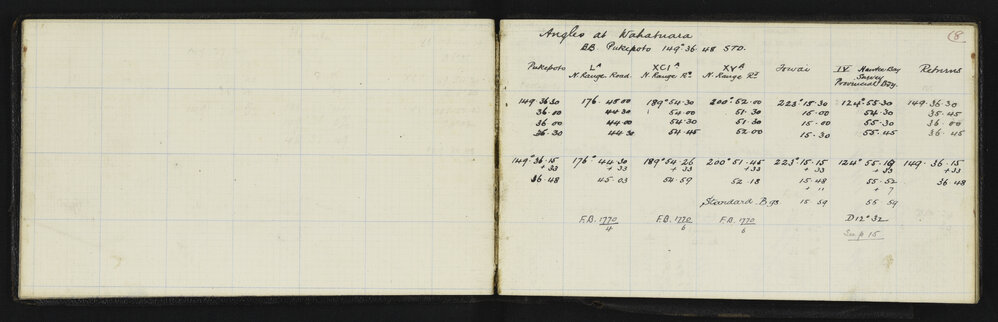 (8
Angles at Wahatuara
BB. Pukepoto 149° 36 48 STD.
Pukepoto LA XCIA XYA Towai IV Hawke Bay Returns
N. Range Road. N. Range Rd N. Range Rd Survey
Provincial Bdy.
149.36.30 176.45.00 189°54.30 200°52.00 223°15.30 124°55.30 149.36.30
36.00 44.30 54.00 51.30 15.00 54.30 35.45
36.00 44.00 54.30 51.30 15.00 55.30 36.00
36.30 44.30 54.45 52.00 15.30 55.45 36 45
149°36.15 176°44.30 189°54.26 200°51.45 223°15.15 124°55.19 149.36.15
+33 +33 +33 +33 +33 +33 +33
36.48 45.03 54.59 52.18 15.48 55.52 36.48
+11 +7
Standard Bgs 15 59 55 59
F.B. 1770/4 F.B. 1770/6 F.B. 1770/6 D12°32
See p 15.